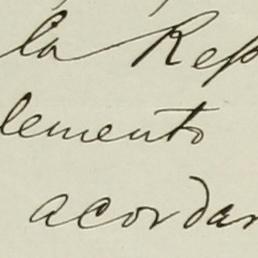 la Rep
lemento
acordar